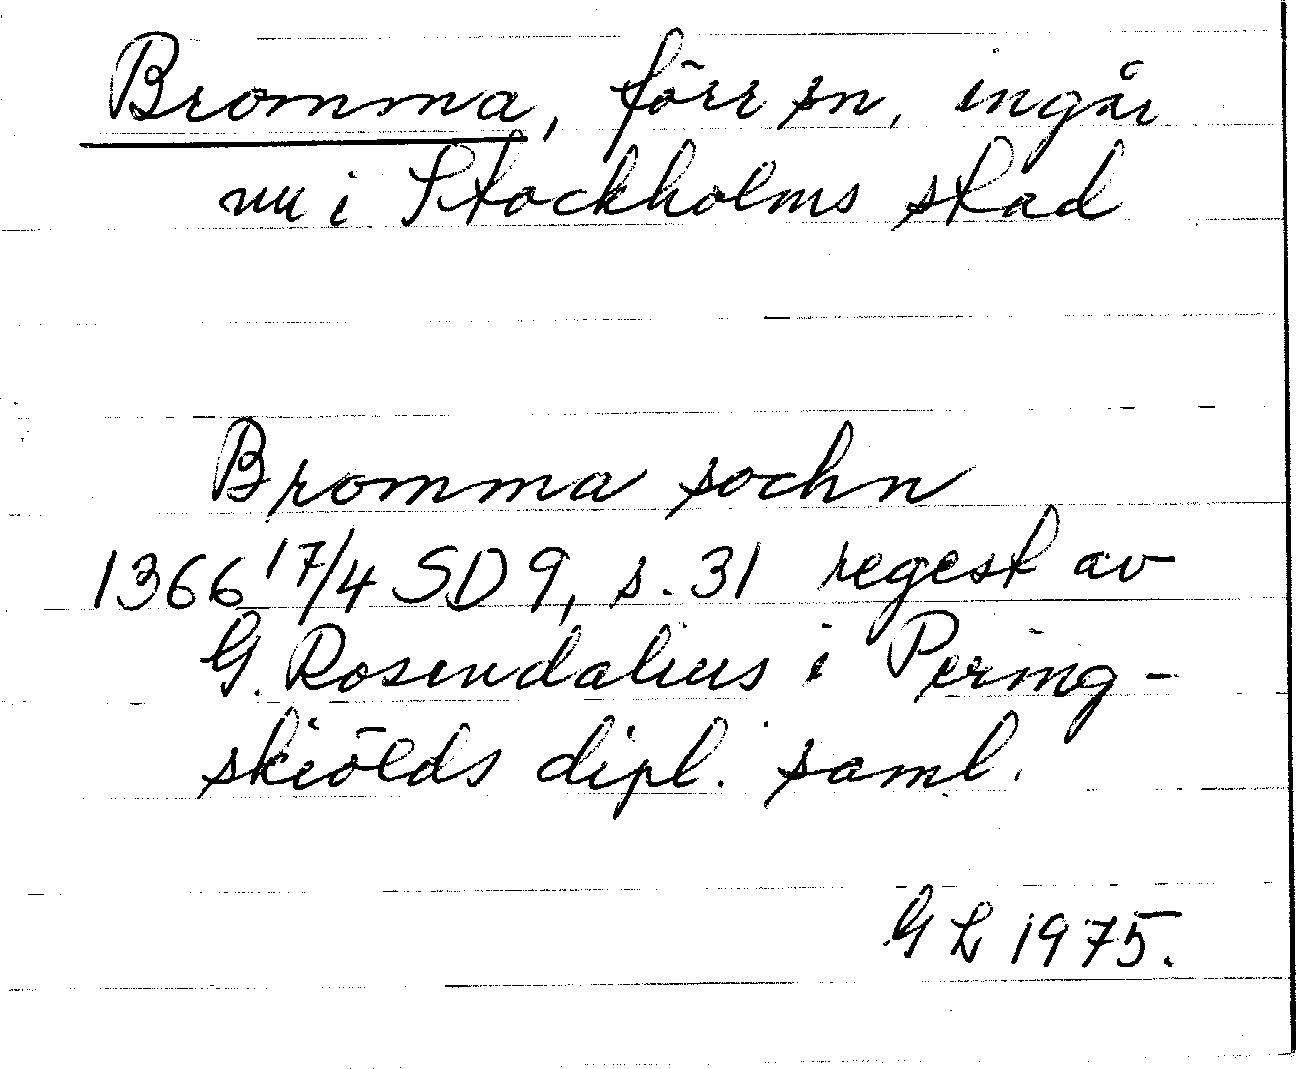 Bromma, förr sn, ingår
nu i Stockholms stad
Bromma sochn
1366 17/4 SD 9, s. 31 regest av
G. Rosendalius i Pering-
skiölds dipl. saml.
GL 1975.